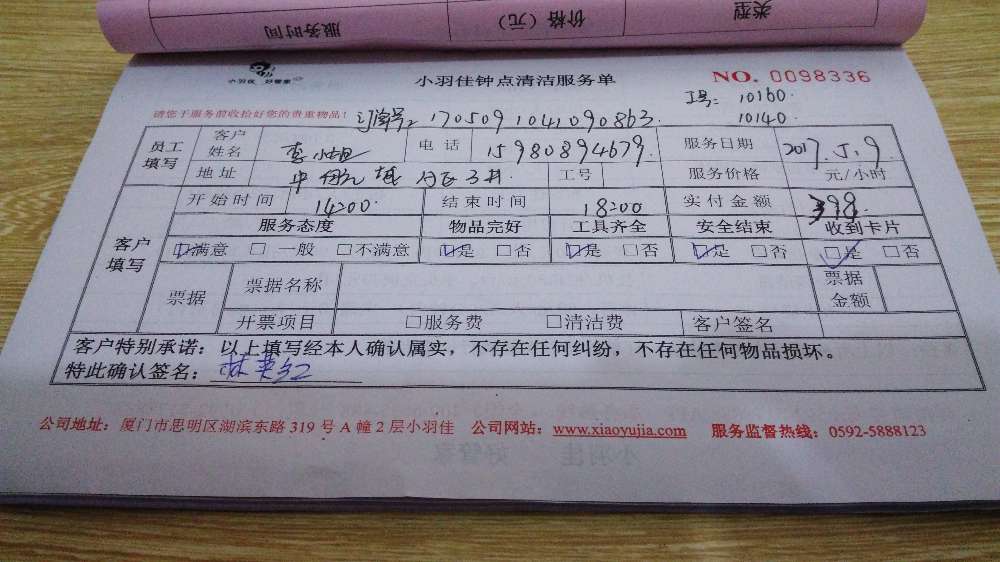 服务时间 价格（元） 类型
小羽佳 好管家
小羽佳钟点清洁服务单 NO. 0098336
工号: 10160.
10140.
请您于服务前收拾好您的贵重物品！ 170509 1041090863.
员工填写 客户姓名 李小姐 电话 15980894679. 服务日期 2017.5.9
地址 工号 服务价格 元/小时
客户填写 开始时间 14:00 结束时间 18:00 实付金额 398.
服务态度 物品完好 工具齐全 安全结束 收到卡片
☑满意 □ 一般 □不满意 ☑是 □否 ☑是 □否 ☑是 □否 ☑是 □否
票据 票据名称 票据金额
开票项目 □服务费 □清洁费 客户签名
客户特别承诺：以上填写经本人确认属实，不存在任何纠纷，不存在任何物品损坏。
特此确认签名：
公司地址：厦门市思明区湖滨东路 319 号 A 幢 2 层小羽佳 公司网站：www.xiaoyujia.com 服务监督热线：0592-5888123